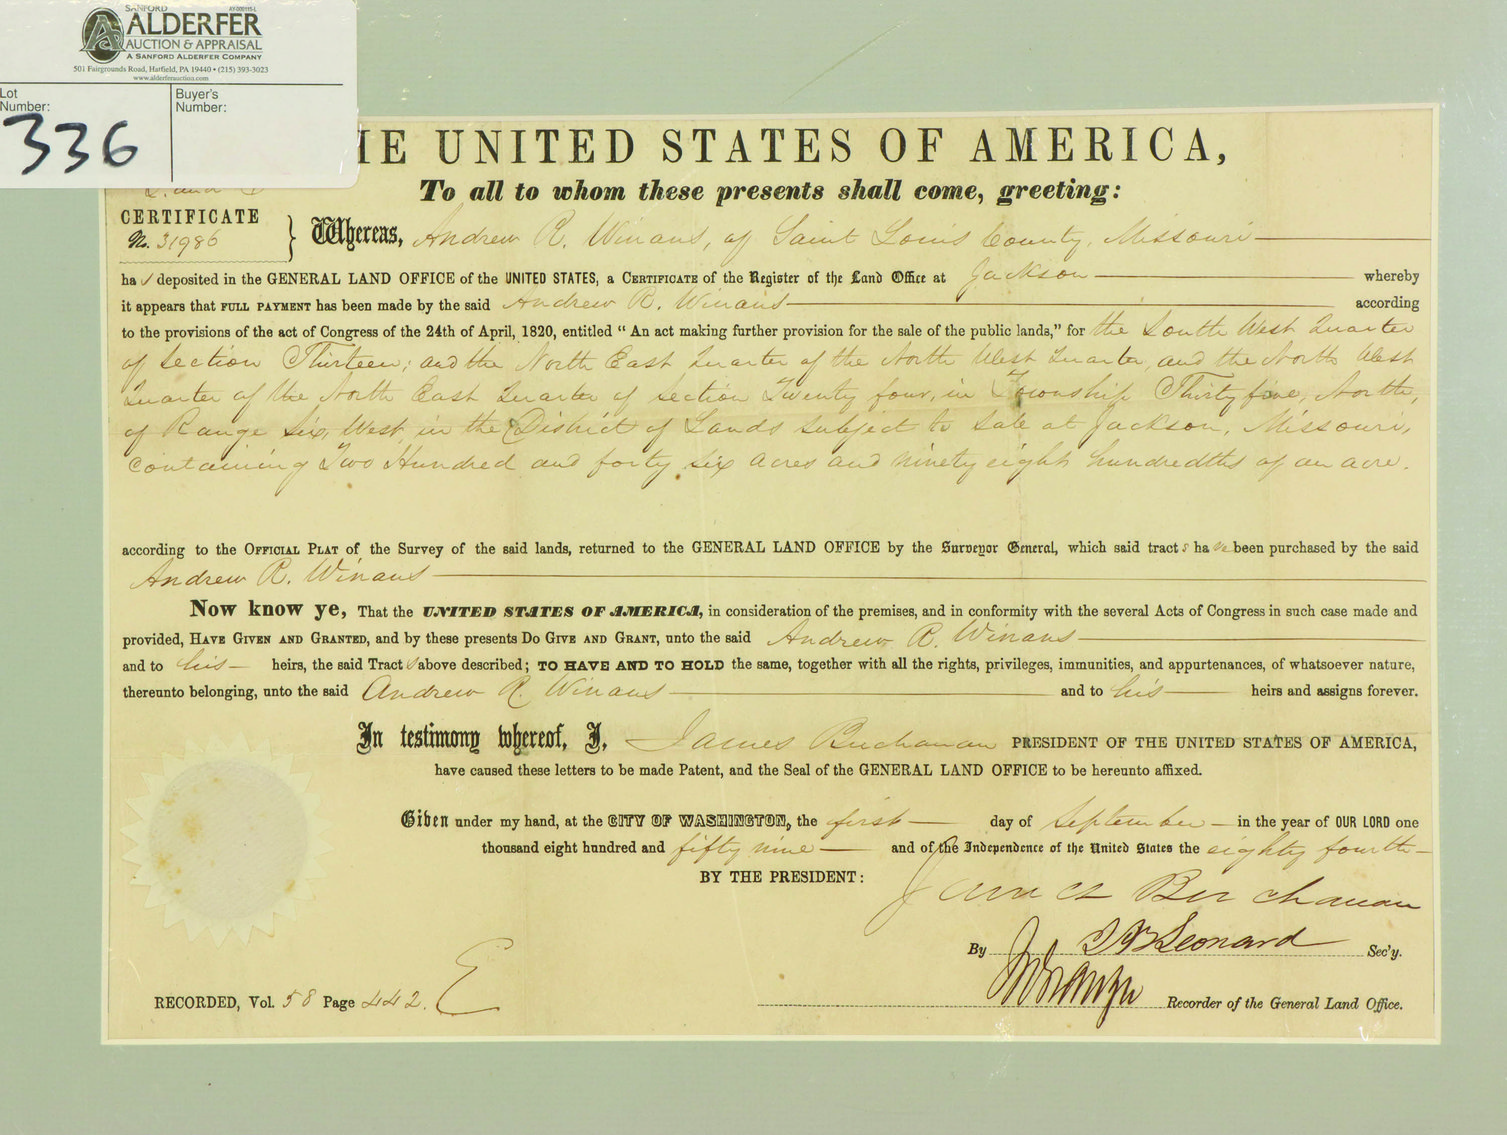 SANFORD
AY-000115-L
ALDERFER
AUCTION & APPRAISAL
A SANFORD ALDERFER COMPANY
501 Fairgrounds Road, Hatfield, PA 19440 • (215) 393-3023
www.alderferauction.com
Lot Number:
336
Buyer's Number:
HE UNITED STATES OF AMERICA,
To all to whom these presents shall come, greeting:
CERTIFICATE
No. 31986
Whereas, Andrew R. Winans, of Saint Louis County, Missouri
has deposited in the GENERAL LAND OFFICE of the UNITED STATES, a CERTIFICATE of the Register of the Land Office at Jackson whereby
it appears that FULL PAYMENT has been made by the said Andrew R. Winans according
to the provisions of the act of Congress of the 24th of April, 1820, entitled “ An act making further provision for the sale of the public lands,” for the South West Quarter
of section Thirteen; and the North East Quarter of the North West Quarter, and the North West
Quarter of the North East Quarter of section Twenty four, in Township Thirty five, North,
of Range Six, West, in the District of Lands subject to sale at Jackson, Missouri,
containing Two Hundred and forty six acres and ninety eight hundredths of an acre.
according to the OFFICIAL PLAT of the Survey of the said lands, returned to the GENERAL LAND OFFICE by the Surveyor General, which said tracts have been purchased by the said
Andrew R. Winans
Now know ye, That the UNITED STATES OF AMERICA, in consideration of the premises, and in conformity with the several Acts of Congress in such case made and
provided, HAVE GIVEN AND GRANTED, and by these presents DO GIVE AND GRANT, unto the said Andrew R. Winans
and to his heirs, the said Tracts above described; TO HAVE AND TO HOLD the same, together with all the rights, privileges, immunities, and appurtenances, of whatsoever nature,
thereunto belonging, unto the said Andrew R. Winans and to his heirs and assigns forever.
In testimony whereof, I, James Buchanan PRESIDENT OF THE UNITED STATES OF AMERICA,
have caused these letters to be made Patent, and the Seal of the GENERAL LAND OFFICE to be hereunto affixed.
Given under my hand, at the CITY OF WASHINGTON, the first day of September in the year of OUR LORD one
thousand eight hundred and fifty nine and of the Independence of the United States the eighty fourth
BY THE PRESIDENT: James Buchanan
By Leonard Sec'y.
RECORDED, Vol. 58 Page 442. E
Recorder of the General Land Office.